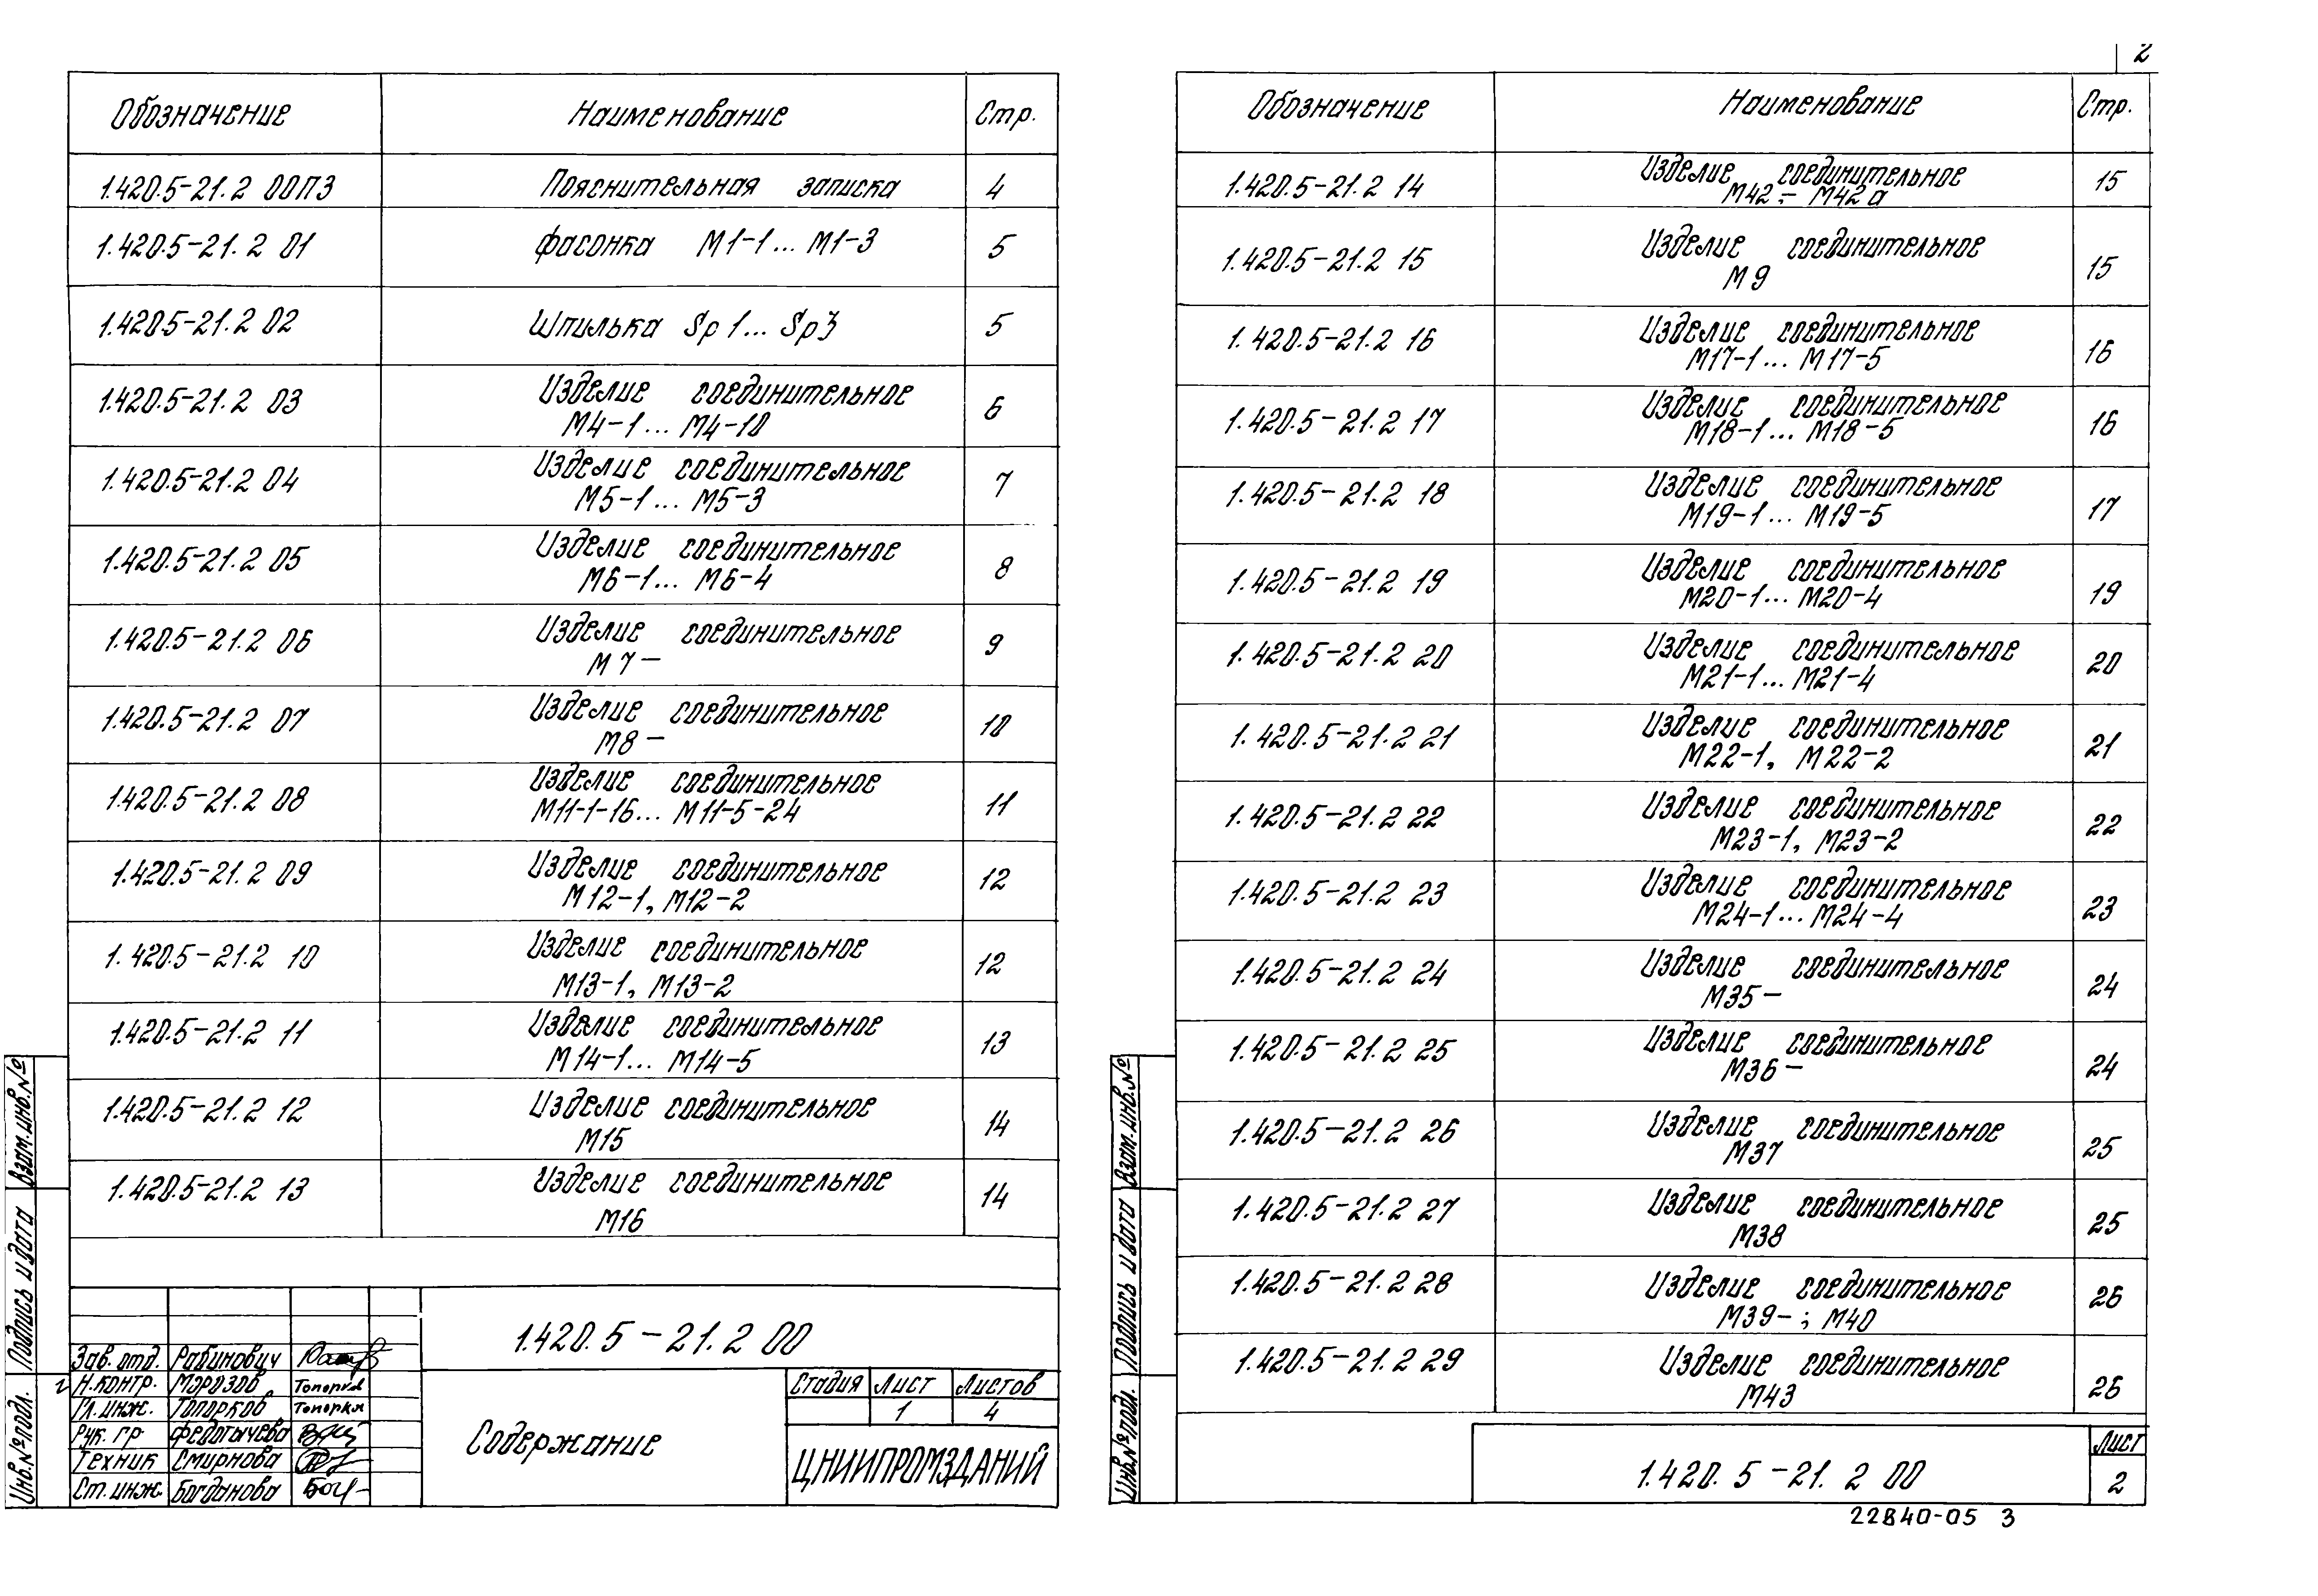 Обозначение Наименование Стр.
1.420.5-21.2 00ПЗ Пояснительная записка 4
1.420.5-21.2 01 Фасонка М1-1... М1-3 5
1.420.5-21.2 02 Шпилька Sp1... Sp3 5
1.420.5-21.2 03 Изделие соединительное 6
М4-1... М4-10
1.420.5-21.2 04 Изделие соединительное 7
М5-1... М5-3
1.420.5-21.2 05 Изделие соединительное 8
М6-1... М6-4
1.420.5-21.2 06 Изделие соединительное 9
М7-
1.420.5-21.2 07 Изделие соединительное 10
М8-
1.420.5-21.2 08 Изделие соединительное 11
М11-1-16... М11-5-24
1.420.5-21.2 09 Изделие соединительное 12
М12-1, М12-2
1.420.5-21.2 10 Изделие соединительное 12
М13-1, М13-2
1.420.5-21.2 11 Изделие соединительное 13
М14-1... М14-5
1.420.5-21.2 12 Изделие соединительное 14
М15
1.420.5-21.2 13 Изделие соединительное 14
М16
1.420.5-21.2 00
Зав. отд. Рабинович
Н.контр. Морозов
Гл. инж. Топорков
Рук. гр Федотычева
Техник Смирнова
Ст. инж. Богданова
Содержание
Стадия Лист Листов
1 4
ЦНИИПРОМЗДАНИЙ
Взам. инв. №
Подпись и дата
Инв. № подл.
2
Обозначение Наименование Стр.
1.420.5-21.2 14 Изделие соединительное 15
М42 ÷ М42а
1.420.5-21.2 15 Изделие соединительное 15
М9
1.420.5-21.2 16 Изделие соединительное 16
М17-1... М17-5
1.420.5-21.2 17 Изделие соединительное 16
М18-1... М18-5
1.420.5-21.2 18 Изделие соединительное 17
М19-1... М19-5
1.420.5-21.2 19 Изделие соединительное 19
М20-1... М20-4
1.420.5-21.2 20 Изделие соединительное 20
М21-1... М21-4
1.420.5-21.2 21 Изделие соединительное 21
М22-1, М22-2
1.420.5-21.2 22 Изделие соединительное 22
М23-1, М23-2
1.420.5-21.2 23 Изделие соединительное 23
М24-1... М24-4
1.420.5-21.2 24 Изделие соединительное 24
М35-
1.420.5-21.2 25 Изделие соединительное 24
М36-
1.420.5-21.2 26 Изделие соединительное 25
М37
1.420.5-21.2 27 Изделие соединительное 25
М38
1.420.5-21.2 28 Изделие соединительное 26
М39- ; М40
1.420.5-21.2 29 Изделие соединительное 26
М43
1.420.5-21.2 00
Лист
2
Взам. инв. №
Подпись и дата
Инв. № подл.
22840-05 3